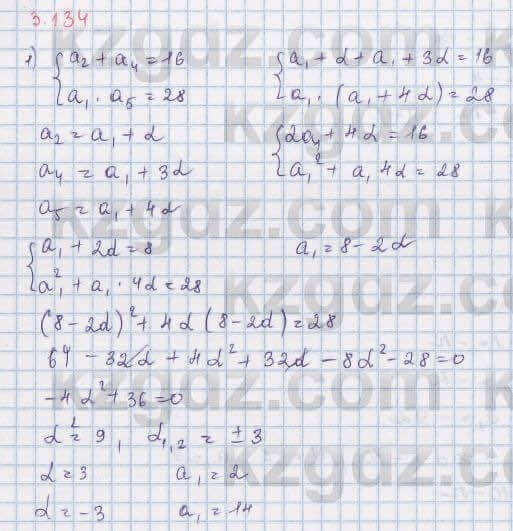 3.134
1) { a₂ + a₄ = 16    { a₁ + d + a₁ + 3d = 16
{ a₁ · a₅ = 28    { a₁ · (a₁ + 4d) = 28
a₂ = a₁ + d    { 2a₁ + 4d = 16
a₄ = a₁ + 3d    { a₁² + a₁ 4d = 28
a₅ = a₁ + 4d
{ a₁ + 2d = 8    a₁ = 8 - 2d
{ a₁² + a₁ · 4d = 28
(8 - 2d)² + 4d (8 - 2d) = 28
64 - 32d + 4d² + 32d - 8d² - 28 = 0
-4d² + 36 = 0
d² = 9, d₁,₂ = ± 3
d = 3    a₁ = 2
d = -3    a₁ = 14
kzgdz.com